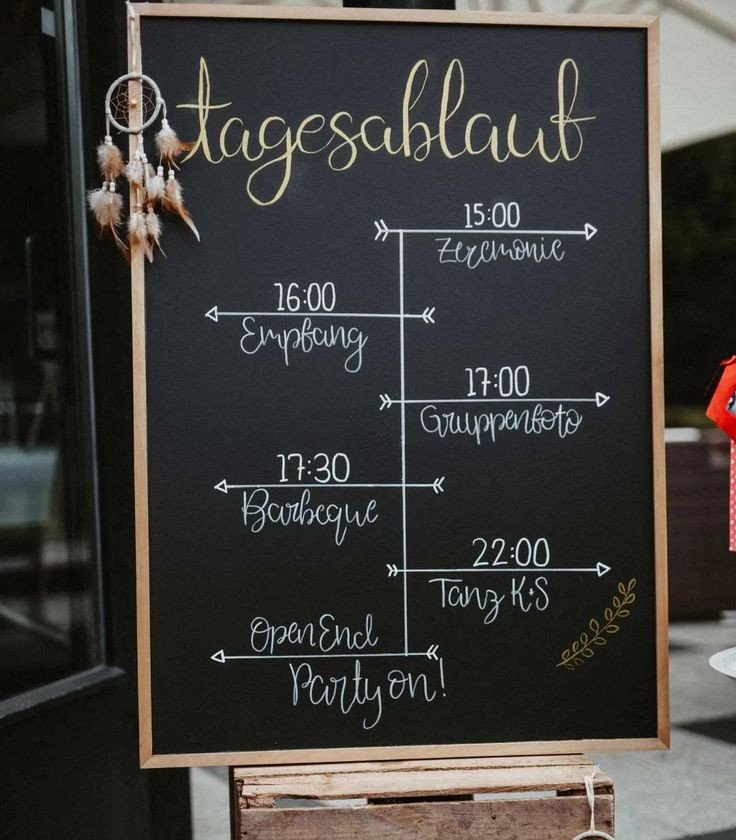 tagesablauf
15:00
Zeremonie
16:00
Empfang
17:00
Gruppenfoto
17:30
Barbeque
22:00
Tanz K+S
Open End
Party on!